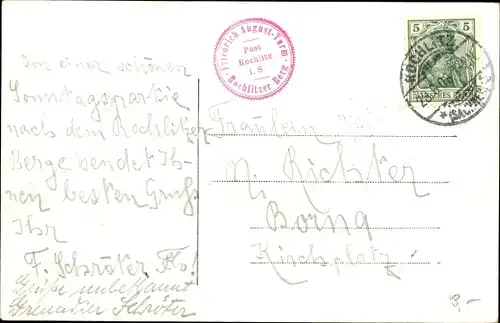 Von einer schönen
Sonntagspartie
nach dem Rochlitzer
Berge sendet Ih-
nen besten Gruß
Ihr
F. Schröter
Grüße unbekannt
Grenadier Schröter
Friedrich August-Turm
Post
Rochlitz
i. S.
Rochlitzer Berg
5 5
DEUTSCHES REICH
ROCHLITZ
(SACHSEN)
Fräulein
Richter
Borna
Kirchplatz
3,-